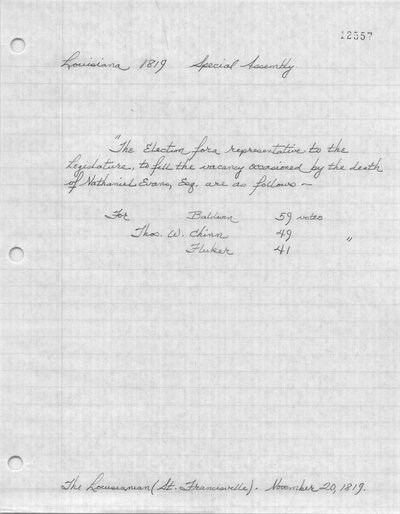 12557
Louisiana 1819 Special Assembly
"The Election for a representative to the
Legislature, to fill the vacancy occasioned by the death
of Nathaniel Evans, Esq. are as follows ~
For Baldwin 59 votes
Thos. W. Chinn 49
Fluker 41 "
The Louisianian (St. Francisville). November 20, 1819.